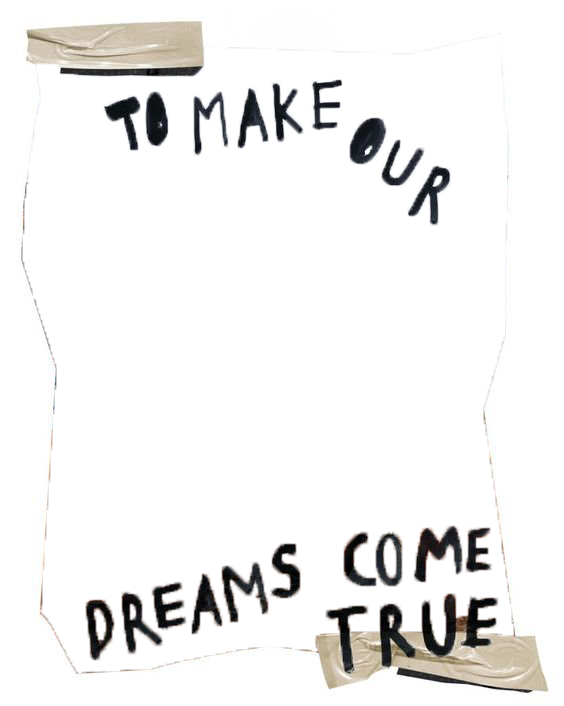 TO MAKE OUR
DREAMS COME
TRUE